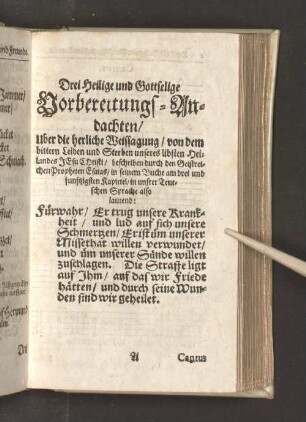 Drei Heilige und Gottselige
Vorbereitungs-An-
dachten/
Uber die herliche Weissagung/ von dem
bittern Leiden und Sterben unseres liebsten Hei-
landes JEsu Christi/ beschrieben durch den Geistrei-
chen Propheten Esaias/ in seinem Buche am drei und
funfzigsten Kapittel/ in unsrer Teut-
schen Sprache also
lautend:
Fürwahr/ Er trug unsere Krank-
heit/ und lud auf sich unsere
Schmertzen/ Er ist üm unserer
Missethat willen verwundet/
und üm unserer Sünde willen
zuschlagen. Die Straffe ligt
auf Ihm/ auf das wir Friede
hätten/ und durch seine Wun-
den sind wir geheilet.
A
Cantus